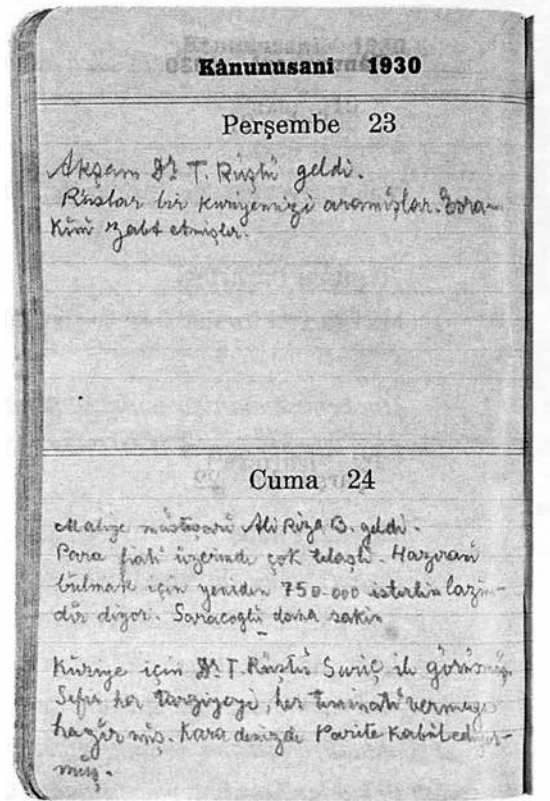 Kânunusani 1930
Perşembe 23
Akşam Dr T. Rüştü geldi.
Ruslar bir kuriyemizi aramışlar. Evra-
kını zabt etmişler.
Cuma 24
Maliye müsteşarı Ali Rıza B. geldi.
Para fiatı üzerinde çok telaşlı. Haziranı
bulmak için yeniden 750.000 isterlin lazım-
dır diyor. Saracoğlu daha sakin
Kuriye için Dr T. Rüştü Suriç ile görüşmüş.
Sefir her tarziyeyi, her teminatı vermeye
hazır mış. Kara denizde Parite kabul ediyor-
muş.